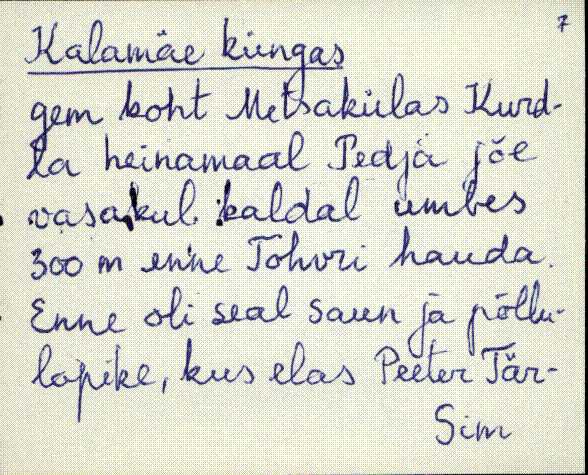 7
Kalamäe küngas
gem koht Metsakülas Kurd-
la heinamaal Pedja jõe
vasakul kaldal umbes
300 m enne Tohvri hauda.
Enne oli seal saun ja põllu-
lapike, kus elas Peeter Tär-
Sim